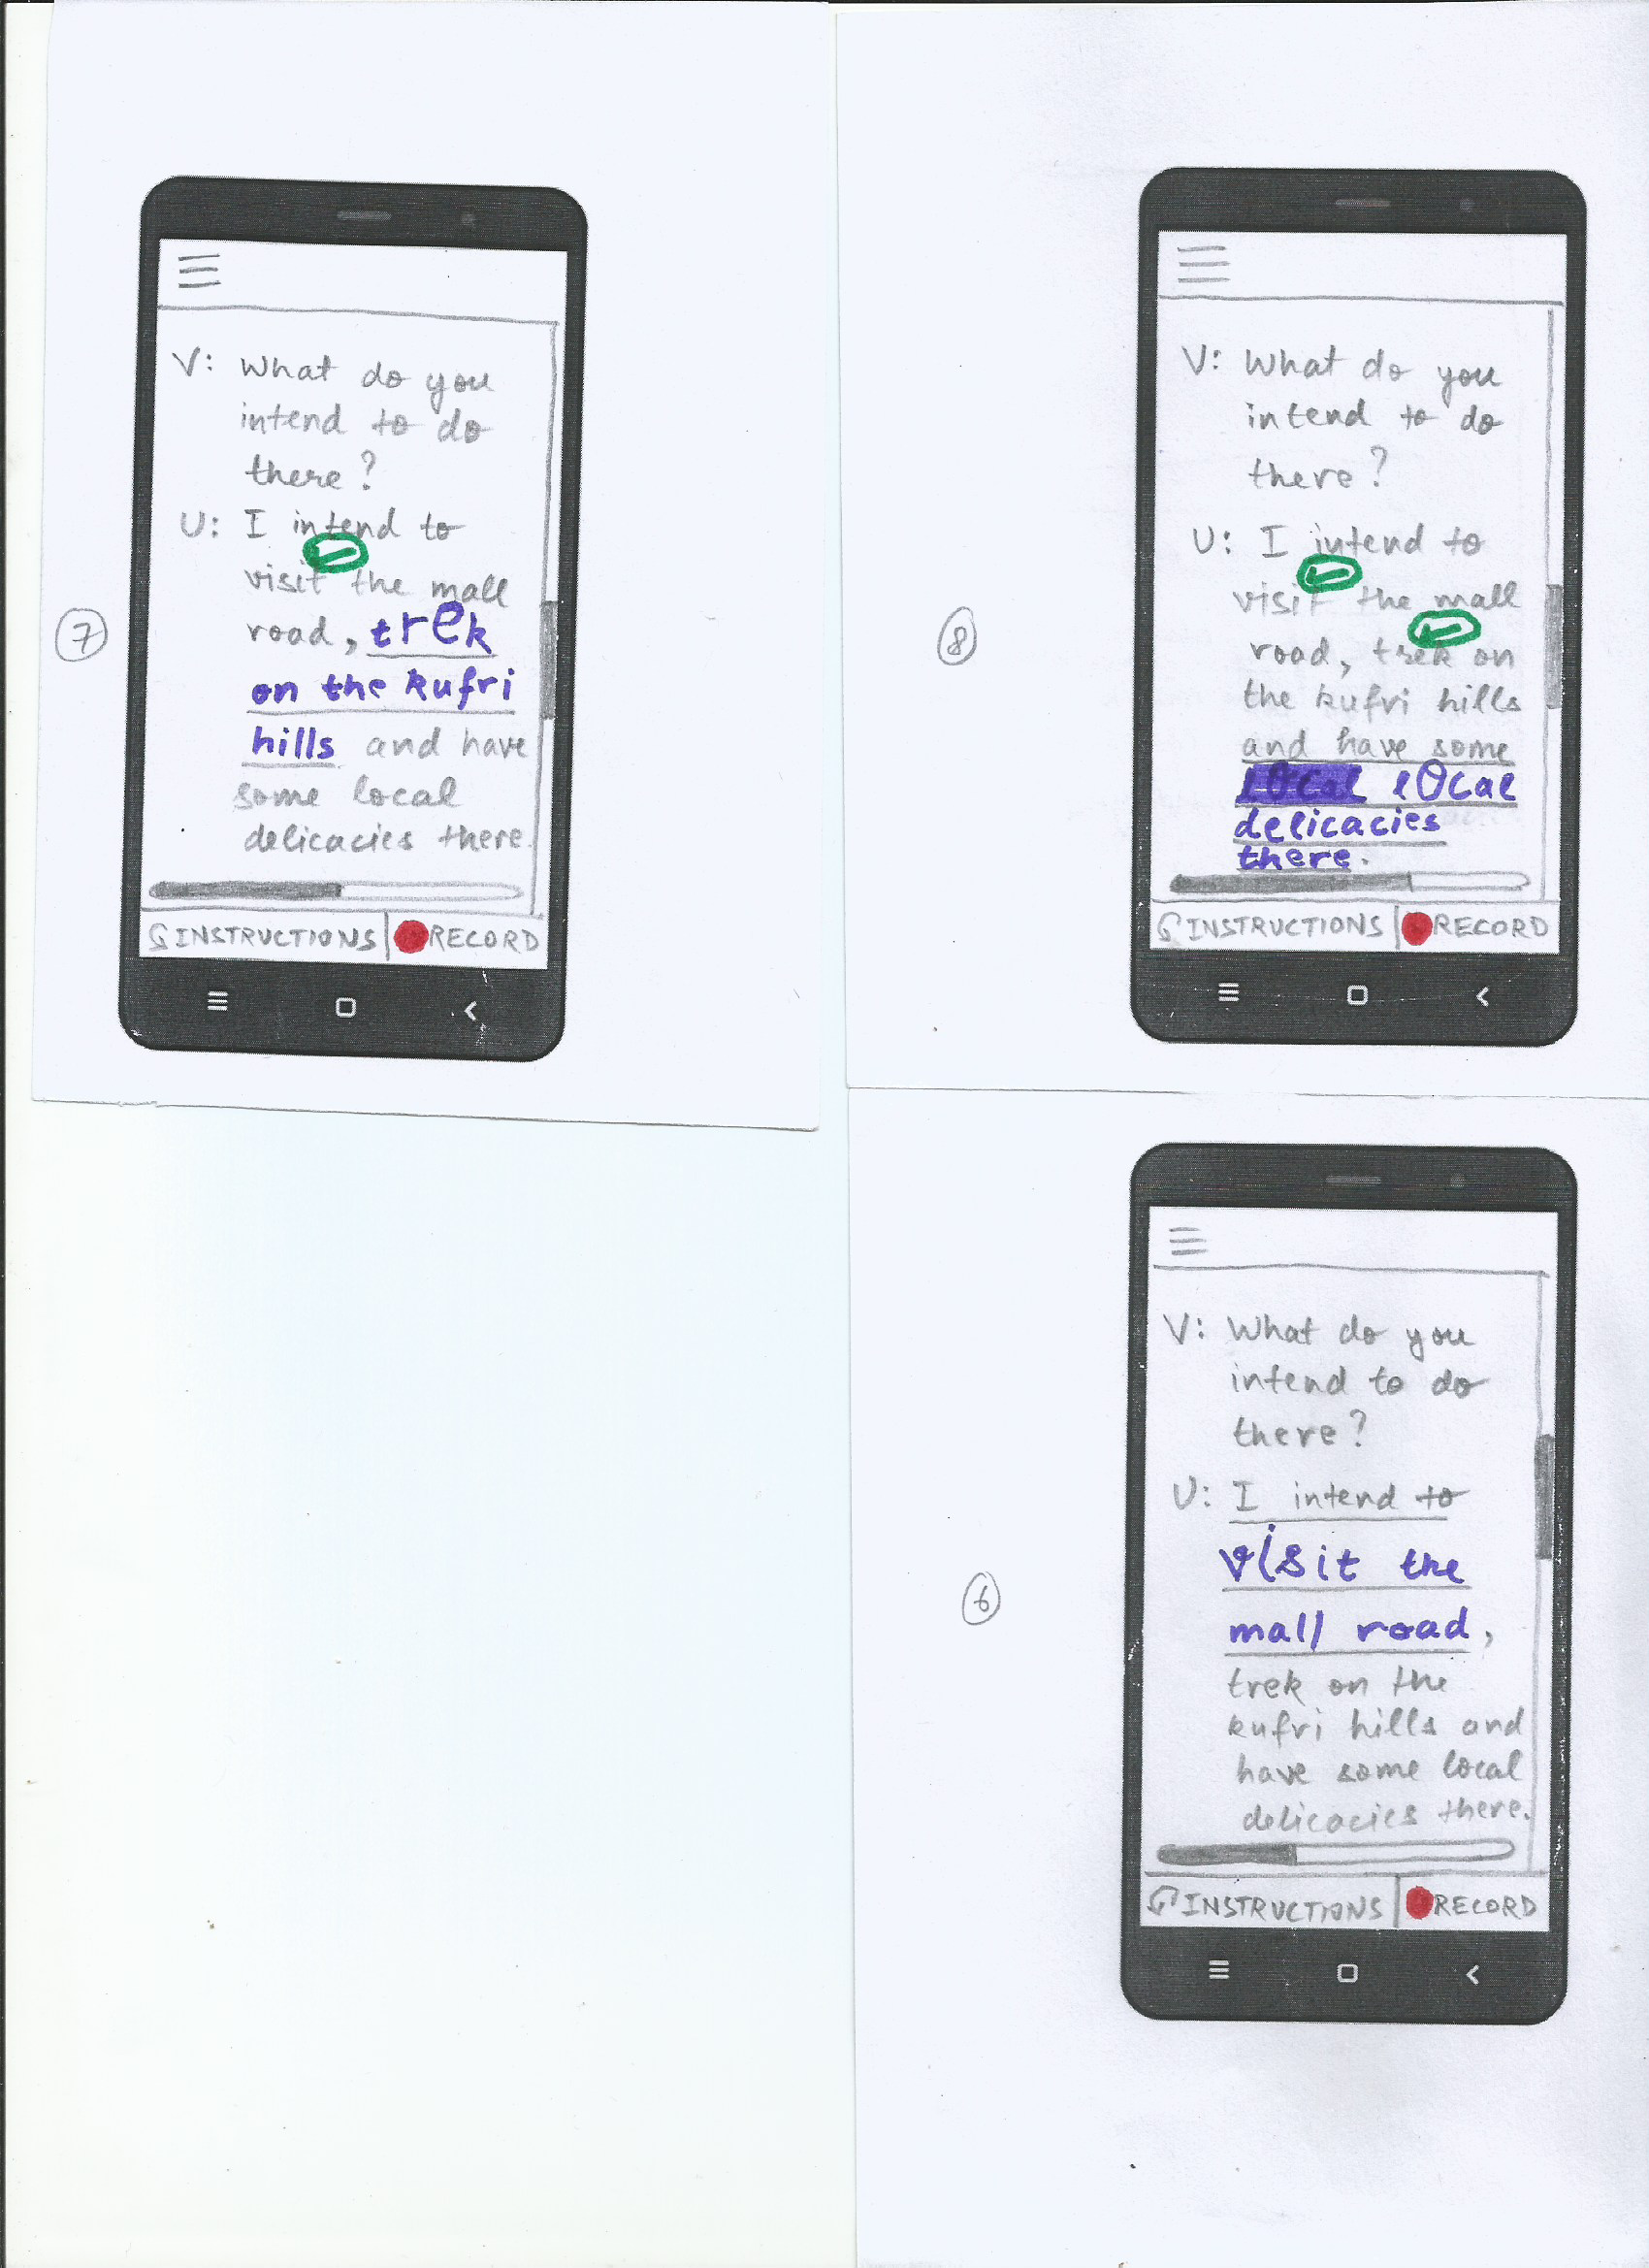 7
V: What do you
intend to do
there?
U: I intend to
visit the mall
road, trek
on the kufri
hills and have
some local
delicacies there.
INSTRUCTIONS RECORD
8
V: What do you
intend to do
there?
U: I intend to
visit the mall
road, trek on
the kufri hills
and have some
local local
delicacies
there.
INSTRUCTIONS RECORD
6
V: What do you
intend to do
there?
U: I intend to
visit the
mall road,
trek on the
kufri hills and
have some local
delicacies there.
INSTRUCTIONS RECORD